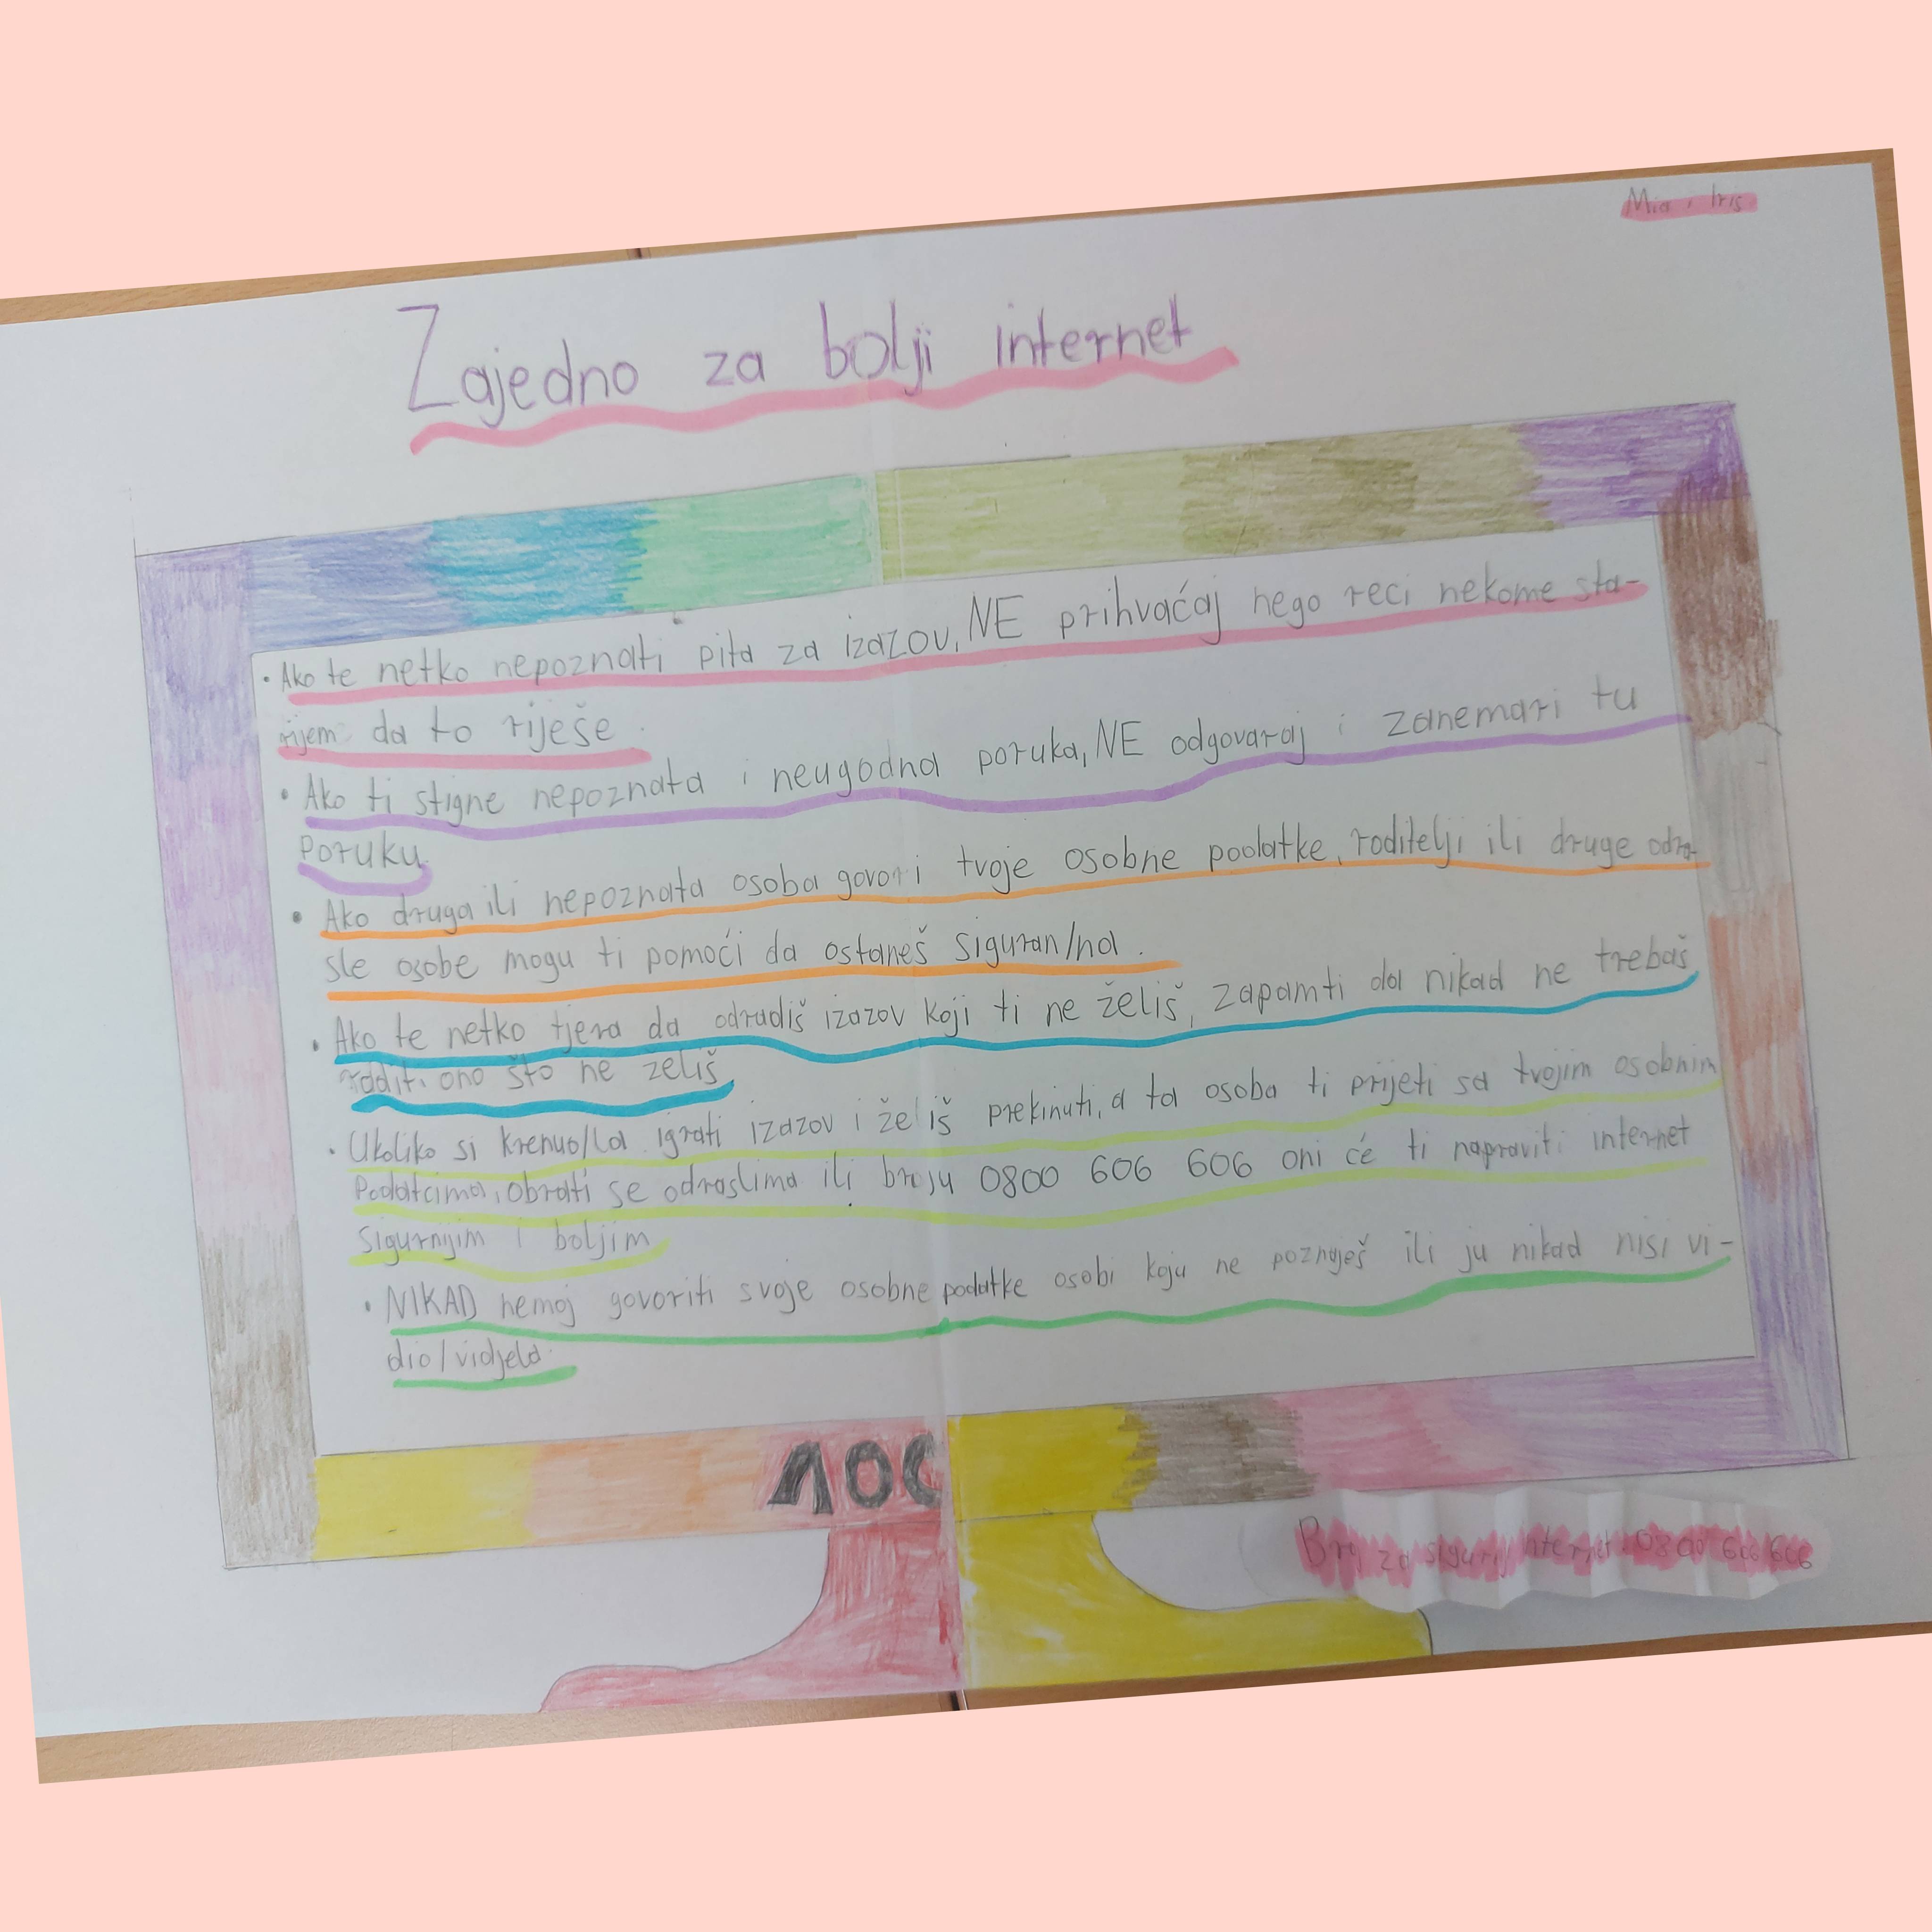 Mia i Iris
Zajedno za bolji internet
• Ako te netko nepoznati pita za izazov, NE prihvaćaj nego reci nekome sta-
rijem da to riješe
• Ako ti stigne nepoznata i neugodna poruka, NE odgovaraj i zanemari tu
poruku.
• Ako druga ili nepoznata osoba govori tvoje osobne podatke, roditelji ili druge odra-
sle osobe mogu ti pomoći da ostaneš siguran/na.
• Ako te netko tjera da odradiš izazov koji ti ne želiš, zapamti da nikad ne trebaš
raditi ono što ne želiš
• Ukoliko si krenuo/la igrati izazov i želiš prekinuti, a ta osoba ti prijeti sa tvojim osobnim
podatcima, obrati se odraslima ili broju 0800 606 606 oni će ti napraviti internet
sigurnijim i boljim
• NIKAD nemoj govoriti svoje osobne podatke osobi koju ne poznaješ ili ju nikad nisi vi-
dio/vidjela.
ΛOC
Broj za siguran internet: 0800 606 606